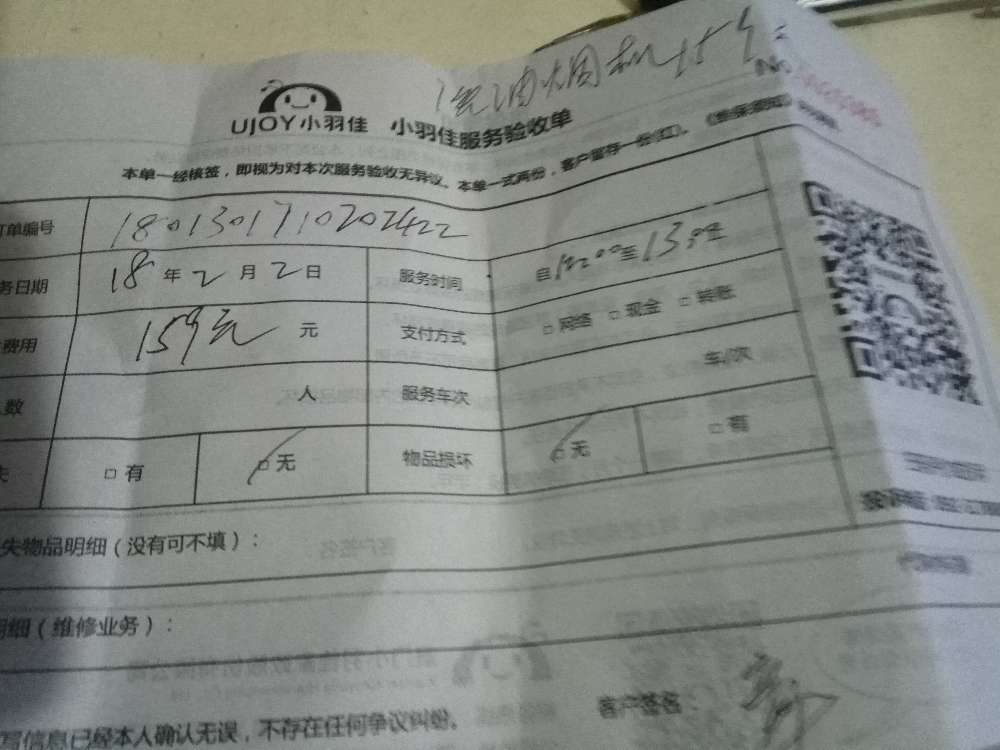 洗油烟机159元
No
UJOY小羽佳 小羽佳服务验收单
本单一经核签，即视为对本次服务验收无异议。本单一式两份，客户留存一份(红)。
订单编号 1801301710202422
务日期 18年2月2日 服务时间 自12:00至
费用 159元 元 支付方式 □网络 □现金 □转账
人数 人 服务车次 车/次
失 □有 □无 物品损坏 □无 □有
失物品明细（没有可不填）：
明细（维修业务）：
客户签名：
写信息已经本人确认无误，不存在任何争议纠纷。